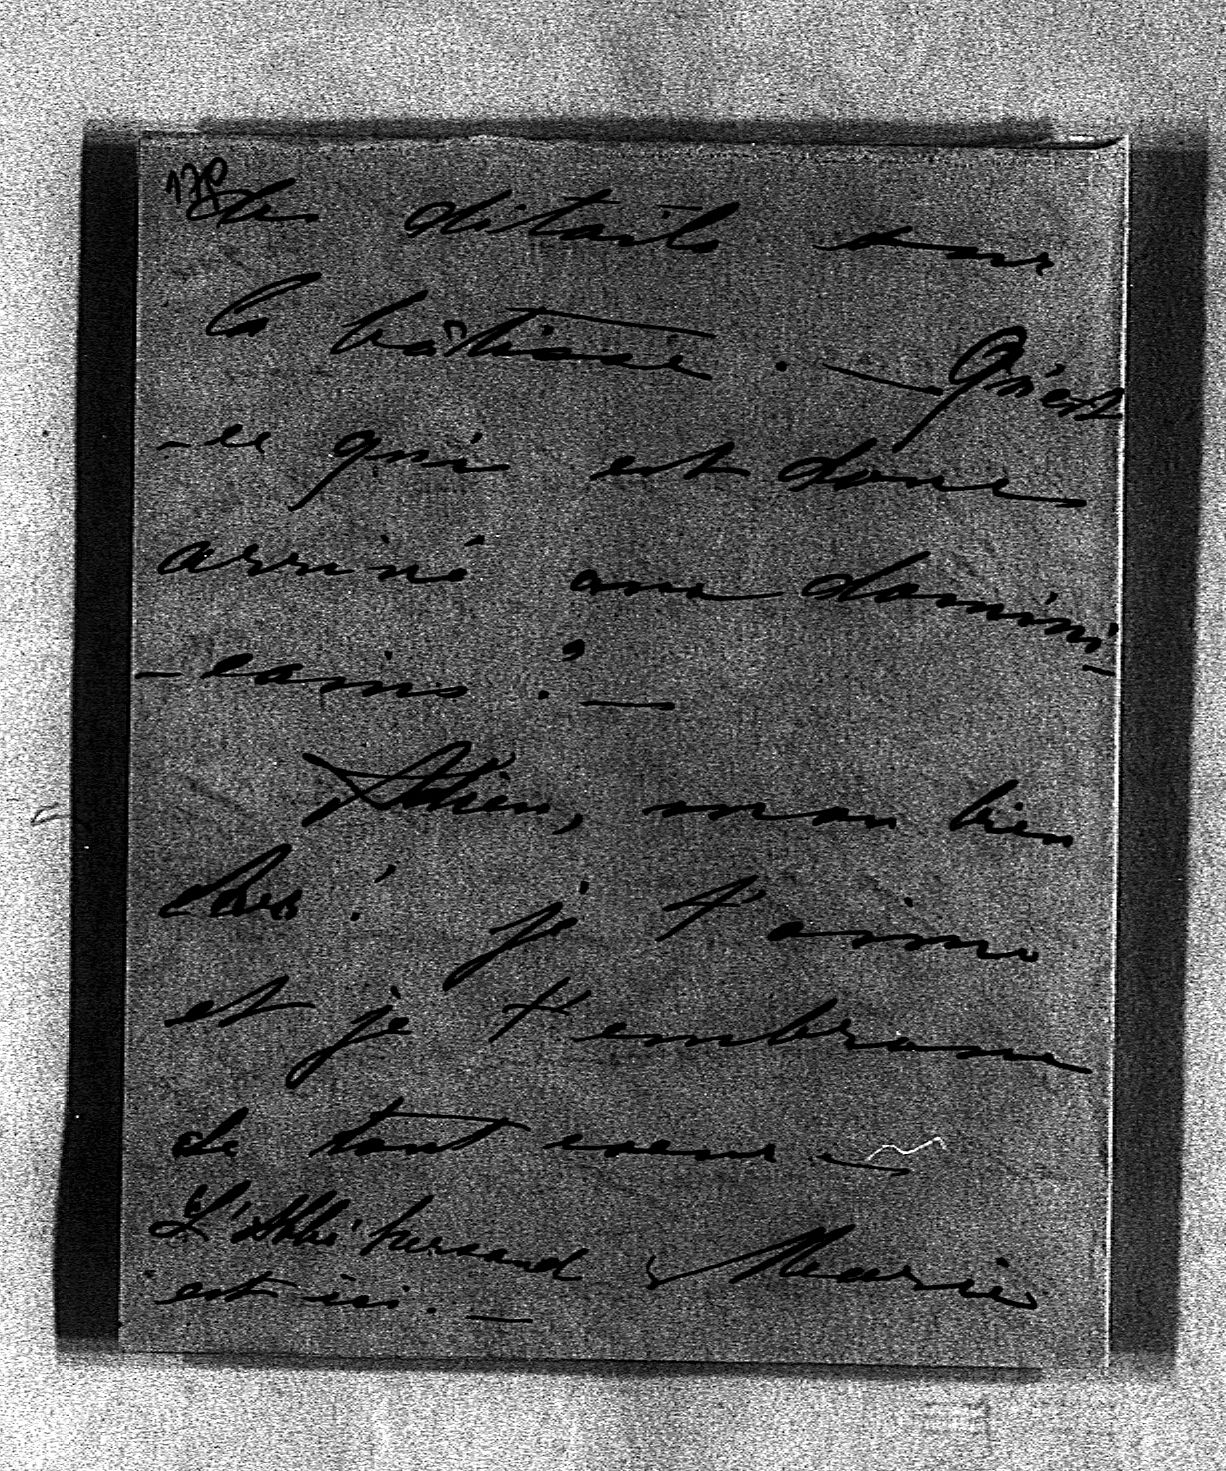 178
des détails sur
la bâtisse. — Qu'est
-ce qui est donc
arrivé aux domini-
-cains ? —
Adieu, mon bien
cher ! je t'aime
et je t'embrasse
de tout coeur —
L'Abbé
est ici. — Marie